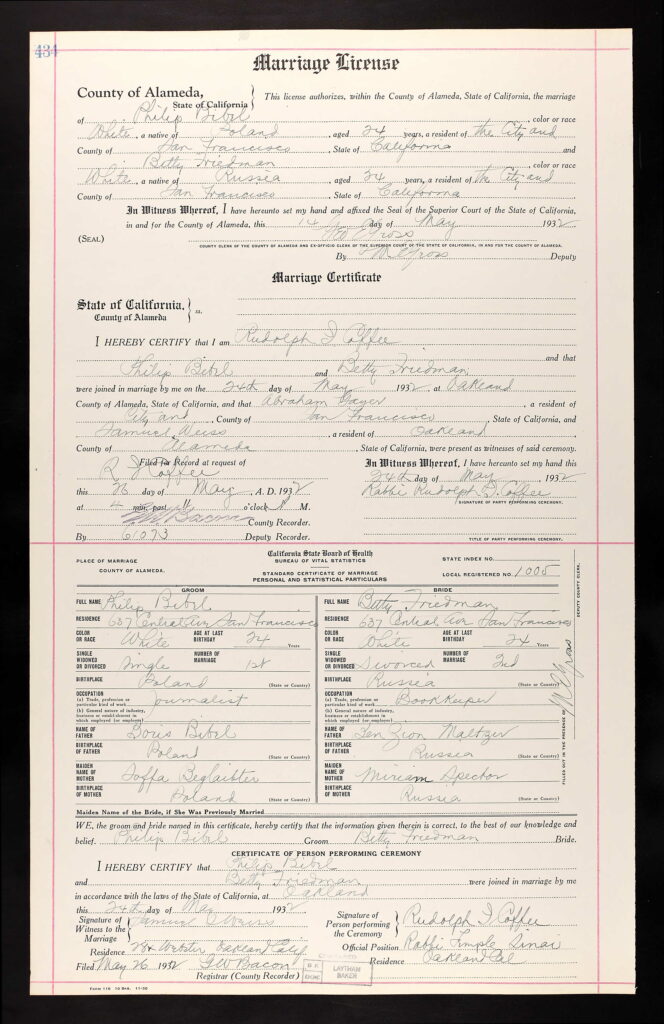 434
Marriage License
County of Alameda,
State of California
This license authorizes, within the County of Alameda, State of California, the marriage
of Philip Bibel, color or race
White, a native of Poland, aged 24 years, a resident of the City and
County of San Francisco, State of California and
Betty Friedman, color or race
White, a native of Russia, aged 24 years, a resident of the City and
County of San Francisco, State of California
In Witness Whereof, I have hereunto set my hand and affixed the Seal of the Superior Court of the State of California,
in and for the County of Alameda, this 14 day of May 1932
(SEAL) Geo Gross
COUNTY CLERK OF THE COUNTY OF ALAMEDA AND EX-OFFICIO CLERK OF THE SUPERIOR COURT OF THE STATE OF CALIFORNIA, IN AND FOR THE COUNTY OF ALAMEDA.
By M E Gross Deputy
Marriage Certificate
State of California,
County of Alameda
ss.
I HEREBY CERTIFY that I am Rudolph I Coffee
and that
Philip Bibel and Betty Friedman
were joined in marriage by me on the 24th day of May 1932 at Oakland
County of Alameda, State of California, and that Abraham Gayer, a resident of
City and, County of San Francisco, State of California, and
Samuel Weiss a resident of Oakland
County of Alameda, State of California, were present as witnesses of said ceremony.
Filed for Record at request of
R I Coffee
this 26 day of May, A. D. 1932
at 4 min. past 11 o'clock A M.
G W Bacon
County Recorder.
By 61073 Deputy Recorder.
In Witness Whereof, I have hereunto set my hand this
24th day of May 1932
Rabbi Rudolph I. Coffee
SIGNATURE OF PARTY PERFORMING CEREMONY.
TITLE OF PARTY PERFORMING CEREMONY.
PLACE OF MARRIAGE
COUNTY OF ALAMEDA.
California State Board of Health
BUREAU OF VITAL STATISTICS
STANDARD CERTIFICATE OF MARRIAGE
PERSONAL AND STATISTICAL PARTICULARS
STATE INDEX NO.
LOCAL REGISTERED NO. 1005
GROOM
FULL NAME Philip Bibel
RESIDENCE 637 Central Ave San Francisco
COLOR OR RACE White AGE AT LAST BIRTHDAY 24 Years
SINGLE WIDOWED OR DIVORCED Single NUMBER OF MARRIAGE 1st
BIRTHPLACE Poland (State or Country)
OCCUPATION
(a) Trade, profession or particular kind of work Journalist
(b) General nature of industry, business or establishment in which employed (or employer)
NAME OF FATHER Boris Bibel
BIRTHPLACE OF FATHER Poland (State or Country)
MAIDEN NAME OF MOTHER Soffa Beglaibter
BIRTHPLACE OF MOTHER Poland (State or Country)
BRIDE
FULL NAME Betty Friedman
RESIDENCE 637 Central Ave San Francisco
COLOR OR RACE White AGE AT LAST BIRTHDAY 24 Years
SINGLE WIDOWED OR DIVORCED Divorced NUMBER OF MARRIAGE 2nd
BIRTHPLACE Russia (State or Country)
OCCUPATION
(a) Trade, profession or particular kind of work Bookkeeper
(b) General nature of industry, business or establishment in which employed (or employer)
NAME OF FATHER Ben Zion Maltzer
BIRTHPLACE OF FATHER Russia (State or Country)
MAIDEN NAME OF MOTHER Miriam Spector
BIRTHPLACE OF MOTHER Russia (State or Country)
FILLED OUT IN THE PRESENCE OF M E Gross DEPUTY COUNTY CLERK.
Maiden Name of the Bride, if She was Previously Married
WE, the groom and bride named in this certificate, hereby certify that the information given therein is correct, to the best of our knowledge and
belief. Philip Bibel Groom Betty Friedman Bride.
CERTIFICATE OF PERSON PERFORMING CEREMONY
I HEREBY CERTIFY that Philip Bibel
and Betty Friedman were joined in marriage by me
in accordance with the laws of the State of California, at Oakland
this 24th day of May 1932
Signature of Witness to the Marriage Samuel Weiss
Residence Webster Oakland Calif
Filed May 26 1932 G W Bacon
Registrar (County Recorder)
Signature of Person performing the Ceremony Rudolph I Coffee
Official Position Rabbi Temple Sinai
Residence Oakland Cal
LAYTHAM
BAKER
FORM 116